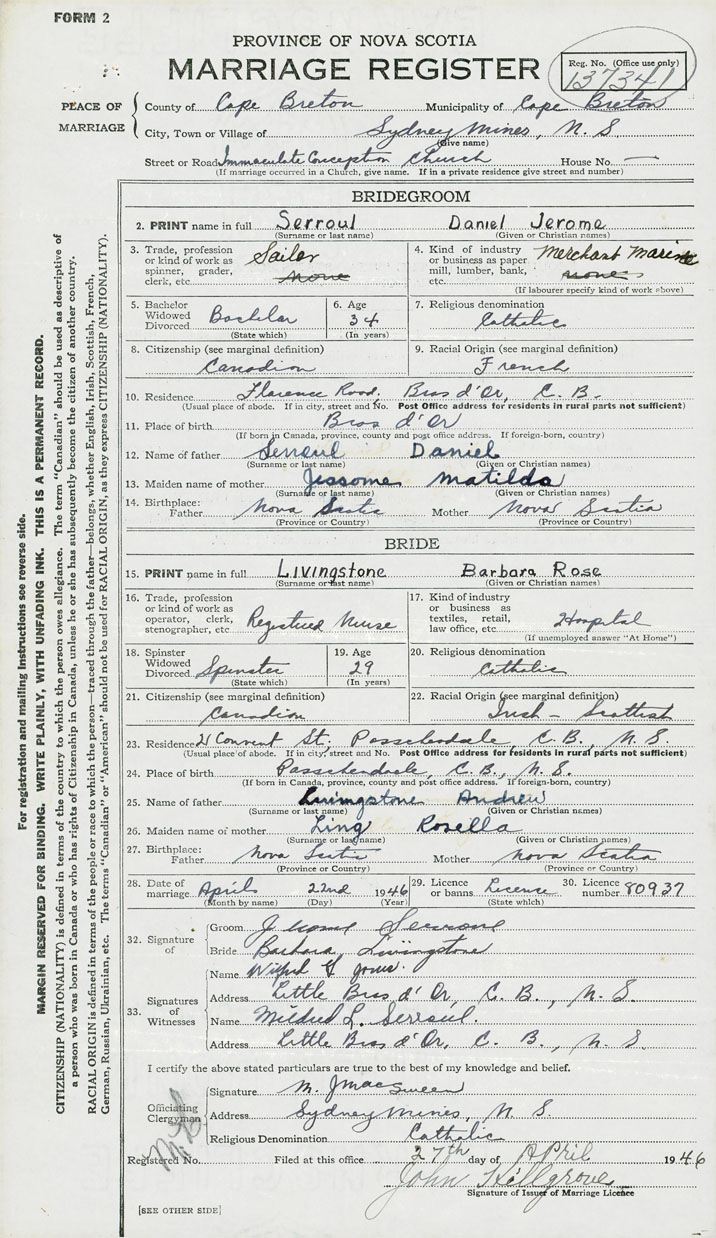 FORM 2
PROVINCE OF NOVA SCOTIA
MARRIAGE REGISTER
Reg. No. (Office use only)
137341
PLACE OF MARRIAGE
County of Cape Breton Municipality of Cape Breton
City, Town or Village of Sydney Mines, N. S
(Give name)
Street or Road Immaculate Conception Church House No. —
(If marriage occurred in a Church, give name. If in a private residence give street and number)
BRIDEGROOM
2. PRINT name in full Serroul Daniel Jerome
(Surname or last name) (Given or Christian names)
3. Trade, profession or kind of work as spinner, grader, clerk, etc. Sailor None
4. Kind of industry or business as paper mill, lumber, bank, etc. Merchant Marine none
(If labourer specify kind of work above)
5. Bachelor Widowed Divorced Bachelor
(State which)
6. Age 34
(In years)
7. Religious denomination Catholic
8. Citizenship (see marginal definition) Canadian
9. Racial Origin (see marginal definition) French
10. Residence Florence Road, Bras d'Or, C. B.
(Usual place of abode. If in city, street and No. Post Office address for residents in rural parts not sufficient)
11. Place of birth Bras d'Or
(If born in Canada, province, county and post office address. If foreign-born, country)
12. Name of father Serroul Daniel
(Surname or last name) (Given or Christian names)
13. Maiden name of mother Jessome Matilda
(Surname or last name) (Given or Christian names)
14. Birthplace: Father Nova Scotia Mother Nova Scotia
(Province or Country) (Province or Country)
BRIDE
15. PRINT name in full Livingstone Barbara Rose
(Surname or last name) (Given or Christian names)
16. Trade, profession or kind of work as operator, clerk, stenographer, etc Registered Nurse
17. Kind of industry or business as textiles, retail, law office, etc. Hospital
(If unemployed answer "At Home")
18. Spinster Widowed Divorced Spinster
(State which)
19. Age 29
(In years)
20. Religious denomination Catholic
21. Citizenship (see marginal definition) Canadian
22. Racial Origin (see marginal definition) Irish - Scottish
23. Residence 21 Convent St. Passchendale, C. B., N. S.
(Usual place of abode. If in city, street and No. Post Office address for residents in rural parts not sufficient)
24. Place of birth Passchendale, C. B., N. S.
(If born in Canada, province, county and post office address. If foreign-born, country)
25. Name of father Livingstone Andrew
(Surname or last name) (Given or Christian names)
26. Maiden name of mother Ling Rosella
(Surname or last name) (Given or Christian names)
27. Birthplace: Father Nova Scotia Mother Nova Scotia
(Province or Country) (Province or Country)
28. Date of marriage April 22nd 1946
(Month by name) (Day) (Year)
29. Licence or banns Licence
(State which)
30. Licence number 80937
32. Signature of
Groom Jerome Serroul
Bride Barbara Livingstone
33. Signatures of Witnesses
Name Wilfred G Jones.
Address Little Bras d'Or, C. B., N. S.
Name Mildred L. Serroul.
Address Little Bras d'Or, C. B., N. S
I certify the above stated particulars are true to the best of my knowledge and belief.
Officiating Clergyman
Signature M. J MacSween
Address Sydney Mines, N. S.
Religious Denomination Catholic
Registered No. Filed at this office 27th day of April 1946
John Hillgrove
Signature of Issuer of Marriage Licence
[SEE OTHER SIDE]
For registration and mailing instructions see reverse side.
MARGIN RESERVED FOR BINDING. WRITE PLAINLY, WITH UNFADING INK. THIS IS A PERMANENT RECORD.
CITIZENSHIP (NATIONALITY) is defined in terms of the country to which the person owes allegiance. The term "Canadian" should be used as descriptive of
a person who was born in Canada or who has rights of Citizenship in Canada, unless he or she has subsequently become the citizen of another country.
RACIAL ORIGIN is defined in terms of the people or race to which the person—traced through the father—belongs, whether English, Irish, Scottish, French,
German, Russian, Ukrainian, etc. The terms "Canadian" or "American" should not be used for RACIAL ORIGIN, as they express CITIZENSHIP (NATIONALITY).